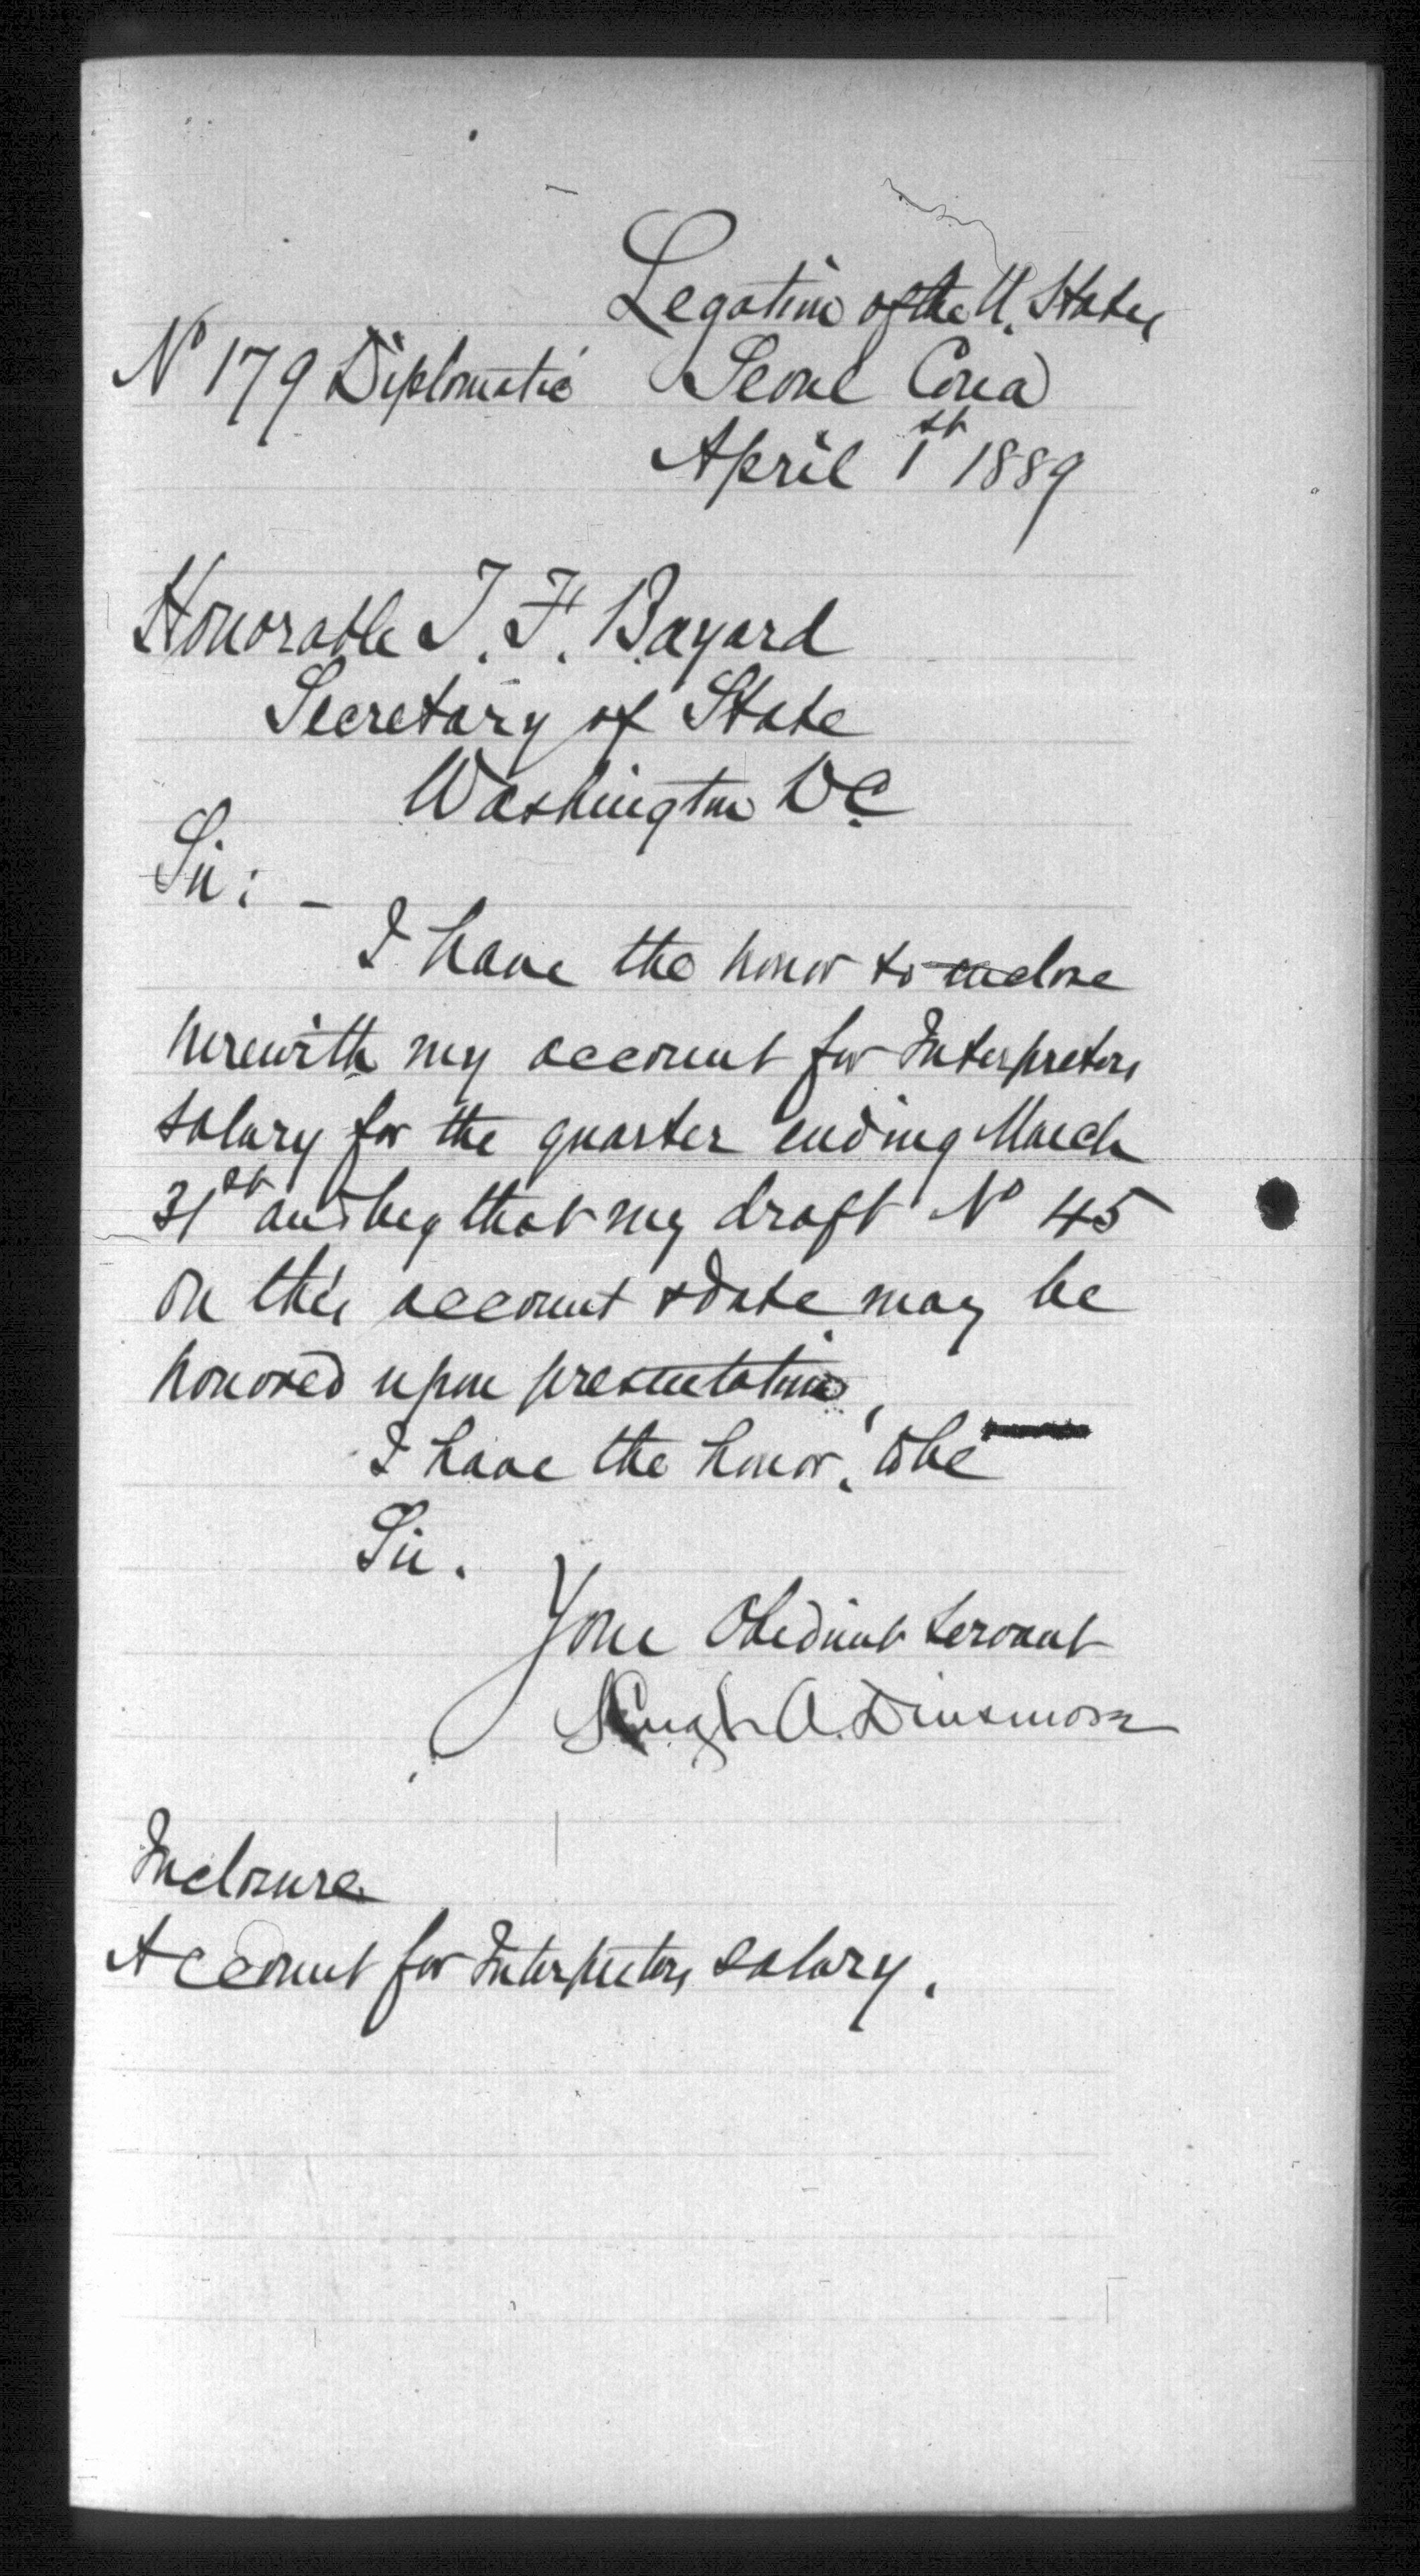 Legation of the U. States
Nº 179 Diplomatic Seoul Corea
April 1st 1889
Honorable T. F. Bayard
Secretary of State
Washington D.C.
Sir: –
I have the honor to enclose
herewith my account for Interpreters
salary for the quarter ending March
31st and beg that my draft Nº 45
on this account & date may be
honored upon presentation,
I have the honor, to be
Sir.
Your Obedient Servant
Hugh A. Dinsmore
Inclosure
Account for Interpreters salary.